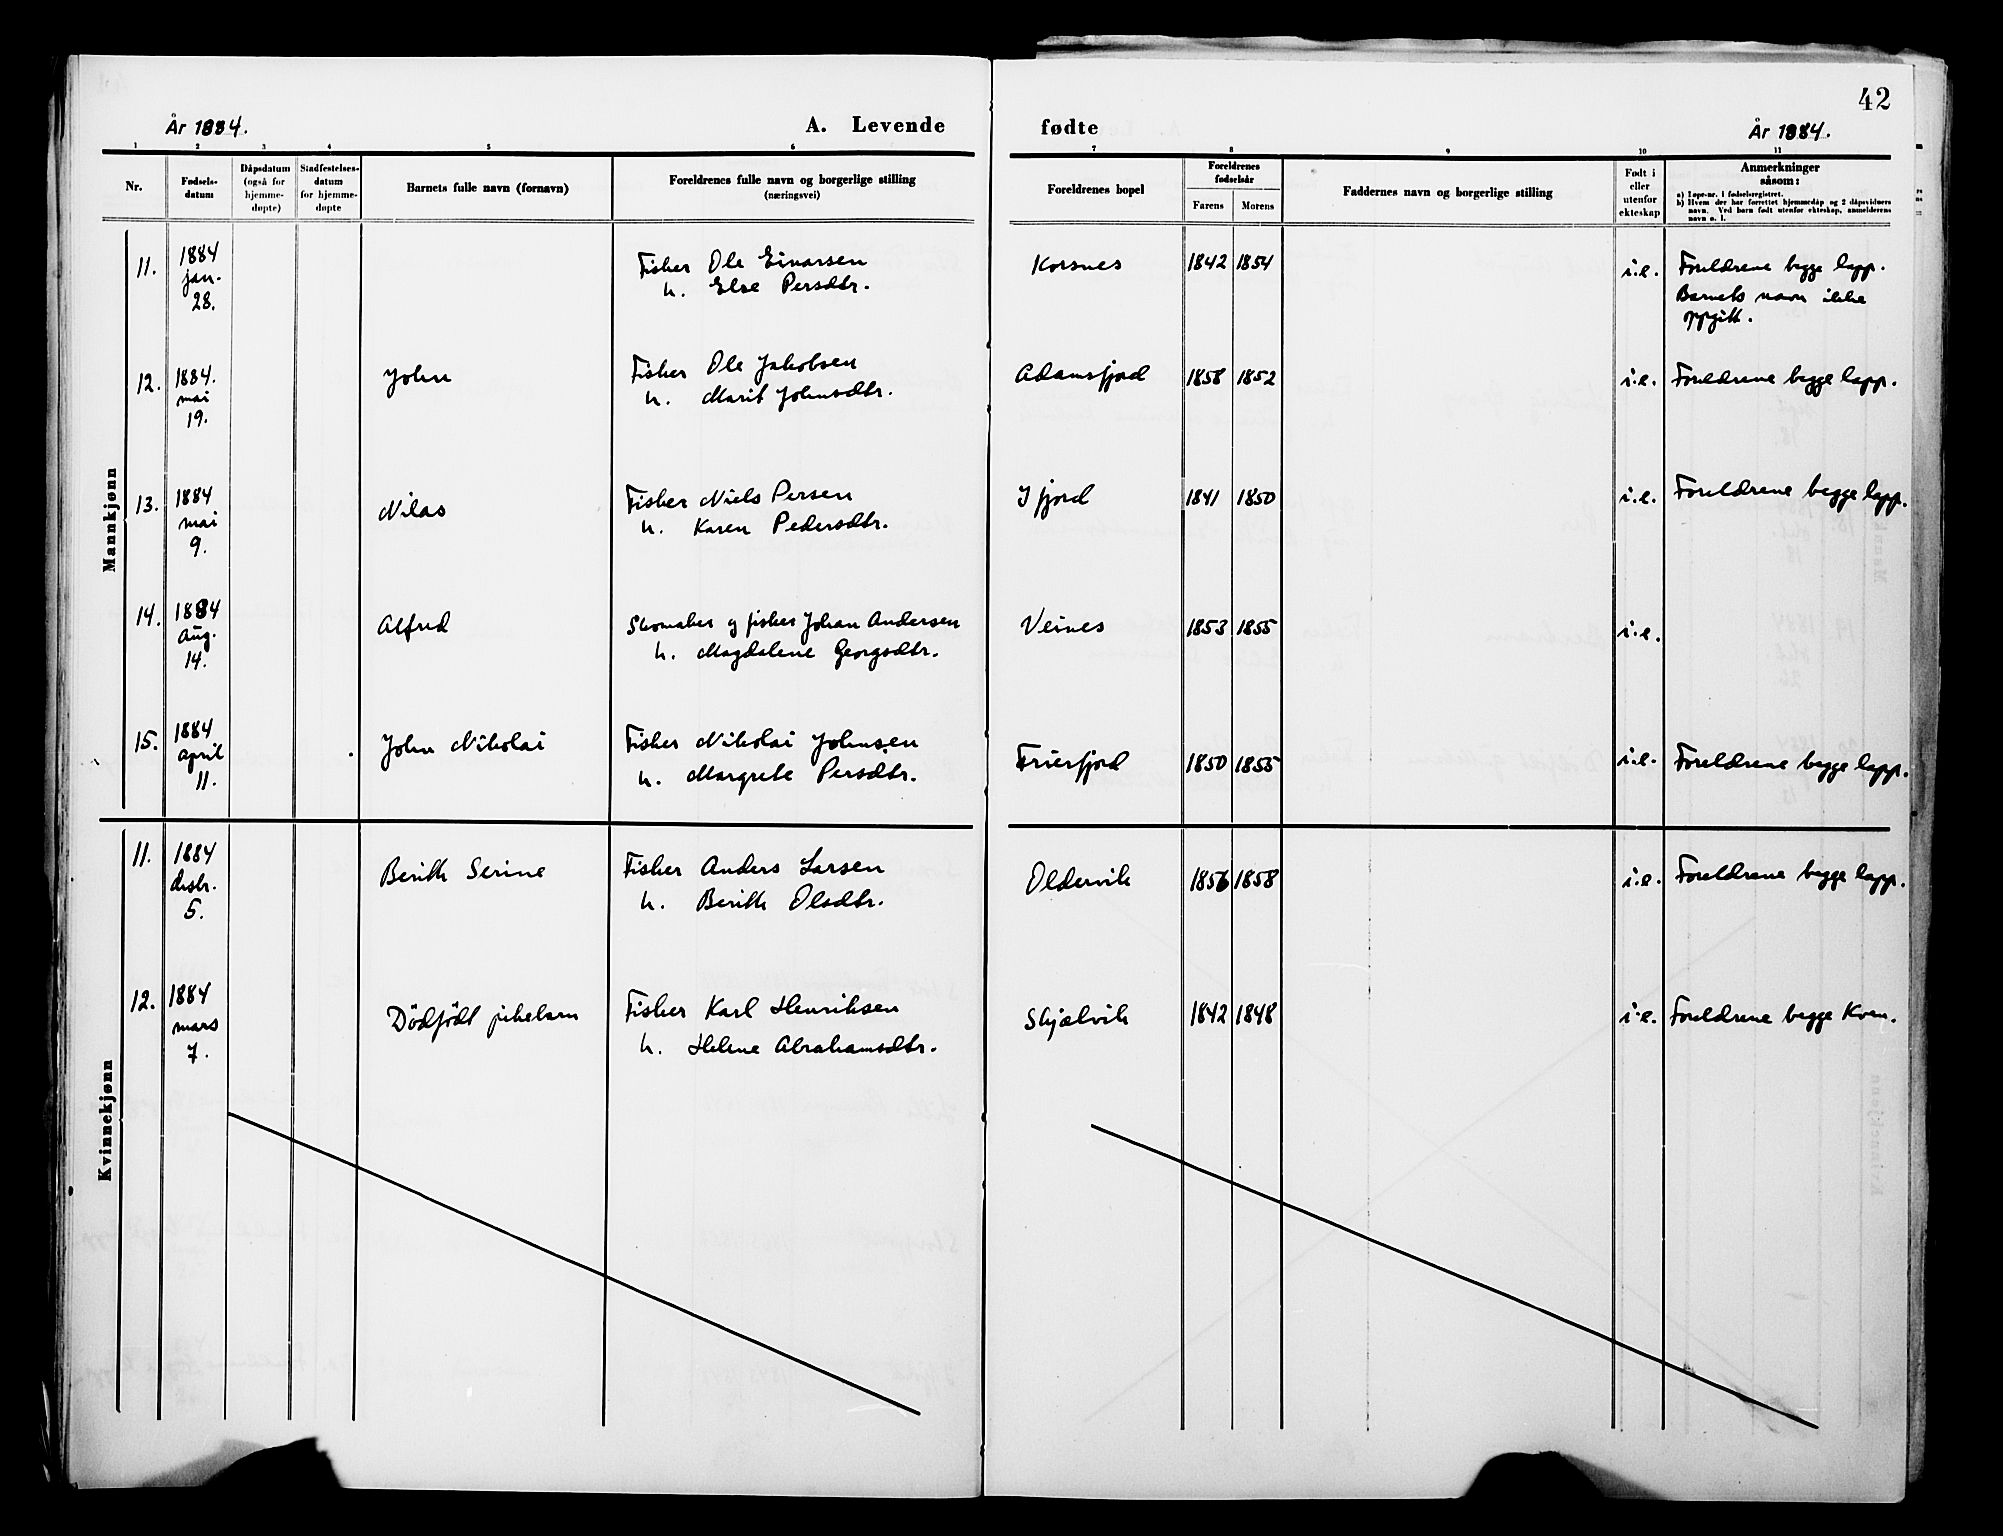 42
År 1884.
A. Levende fødte
År 1884.
1 2 3 4 5 6 7 8 9 10 11
Nr.
Fødsels-
datum
Dåpsdatum
(også for
hjemme-
døpte)
Stadfestelses-
datum
for hjemme-
døpte
Barnets fulle navn (fornavn)
Foreldrenes fulle navn og borgerlige stilling
(næringsvei)
Foreldrenes bopel
Foreldrenes
fødselsår
Farens Morens
Faddernes navn og borgerlige stilling
Født i
eller
utenfor
ekteskap
Anmerkninger
såsom:
a) Løpe-nr. i fødselsregistret.
b) Hvem der har forrettet hjemmedåp og 2 dåpsvidners
navn. Ved barn født utenfor ekteskap, anmelderens
navn o. l.
Mannkjønn
11. 1884 Fisker Ole Einarsen Korsnes 1842 1854 i.e. Foreldrene begge lapp.
jan. h. Else Persdtr. Barnets navn ikke
28. oppgitt.
12. 1884. John Fisker Ole Jakobsen Adamsfjord 1858 1852 i.e. Foreldrene begge lapp.
mai h. Marit Johnsdtr.
19.
13. 1884 Nilas Fisker Niels Persen Ifjord 1841 1850 i.e. Foreldrene begge lapp.
mai h. Karen Pedersdtr.
9.
14. 1884 Alfred Skomaker og fisker Johan Andersen Veines 1853 1855 i.e.
Aug. h. Magdalene Georgsdtr.
14.
15. 1884 John Nikolai Fisker Nikolai Johnsen Frierfjord 1850 1855 i.e. Foreldrene begge lapp.
april h. Margrete Persdtr.
11.
Kvinnekjønn
11. 1884 Berith Serine Fisker Anders Larsen Oldervik 1856 1858 i.e. Foreldrene begge lapp.
desbr. h. Berith Olsdtr.
5.
12. 1884 Dödfödt pikebarn Fisker Karl Henriksen Skjælvik 1842 1848 i.e. Foreldrene begge Kven.
mars h. Helene Abrahamsdtr.
7.